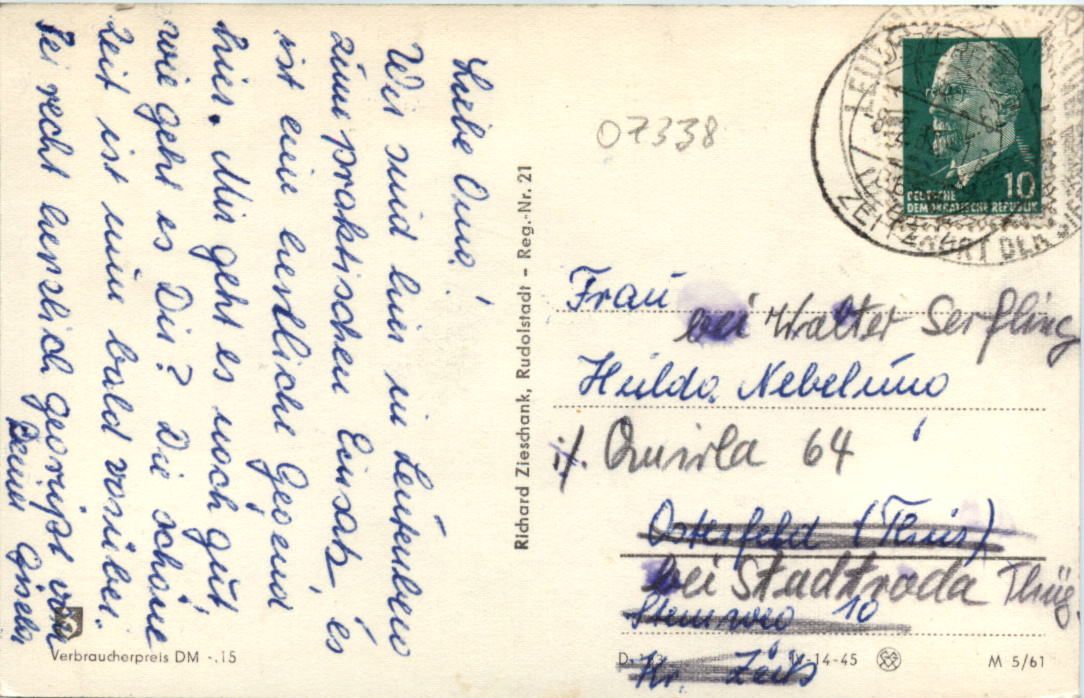 Liebe Oma!
Wir sind hier in Leutenberg
zum praktischen Einsatz, es
ist eine herrliche Gegend
hier. Mir geht es noch gut
wie geht es Dir? Die schöne
Zeit ist nun bald vorüber.
Sei recht herzlich gegrüßt von
Deiner Gisela
Verbraucherpreis DM -.15
Richard Zieschank, Rudolstadt - Reg.-Nr. 21
07338
10
DEUTSCHE
DEMOKRATISCHE REPUBLIK
Frau
bei Walter Serfling
Hulda Nebelung
i/. Quirla 64
Osterfeld (Thür)
bei Stadtroda Thüg.
Steinweg 10
Kr. Zeitz
IV-14-45
M 5/61